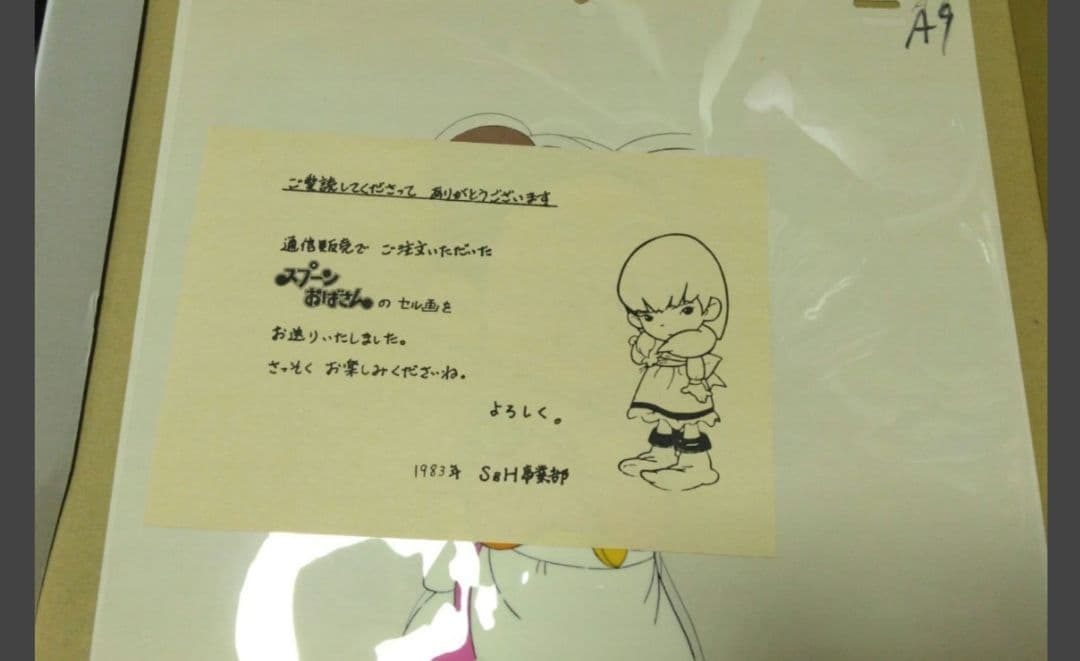 A9
ご愛読してくださって ありがとうございます
通信販売で ご注文いただいた
スプーン
おばさん の セル画を
お送りいたしました。
さっそく お楽しみくださいね。
よろしく。
1983年 S&H事業部